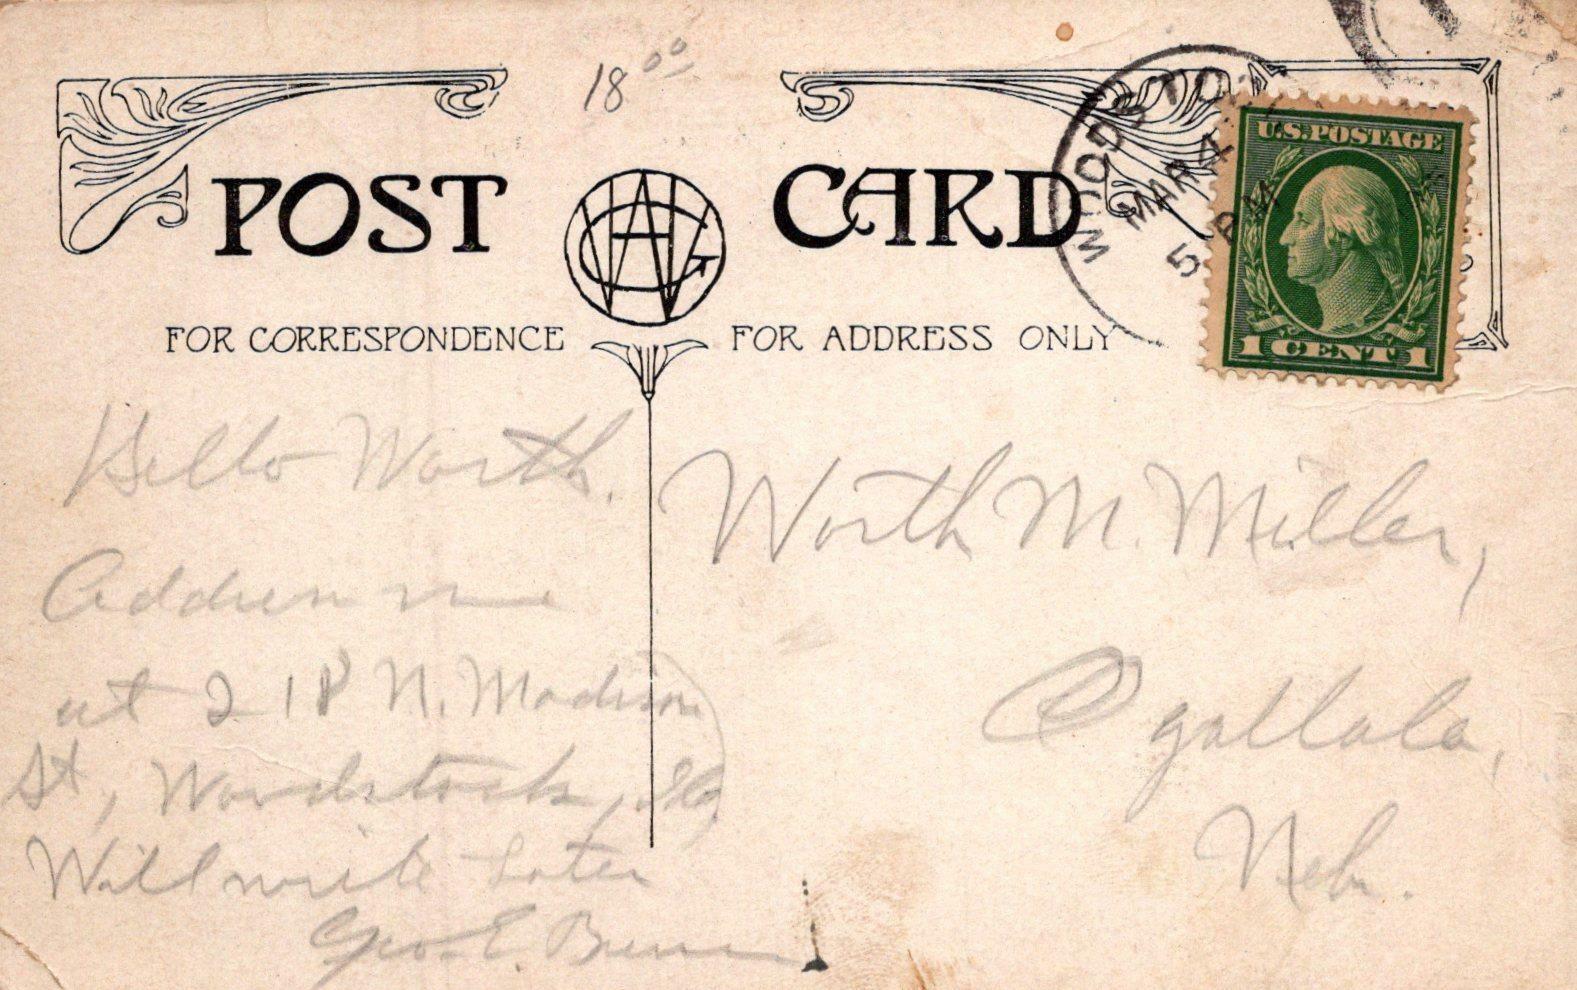 18 00
POST CARD
WOODSTO
MAR 4
5 PM
U.S. POSTAGE
1 CENT 1
FOR CORRESPONDENCE
FOR ADDRESS ONLY
Hello Worth.
Address me
at 218 N. Madison
St, Woodstock, Ill
Will write Later
Geo. E.
Worth M. Miller,
Ogallala,
Neb.